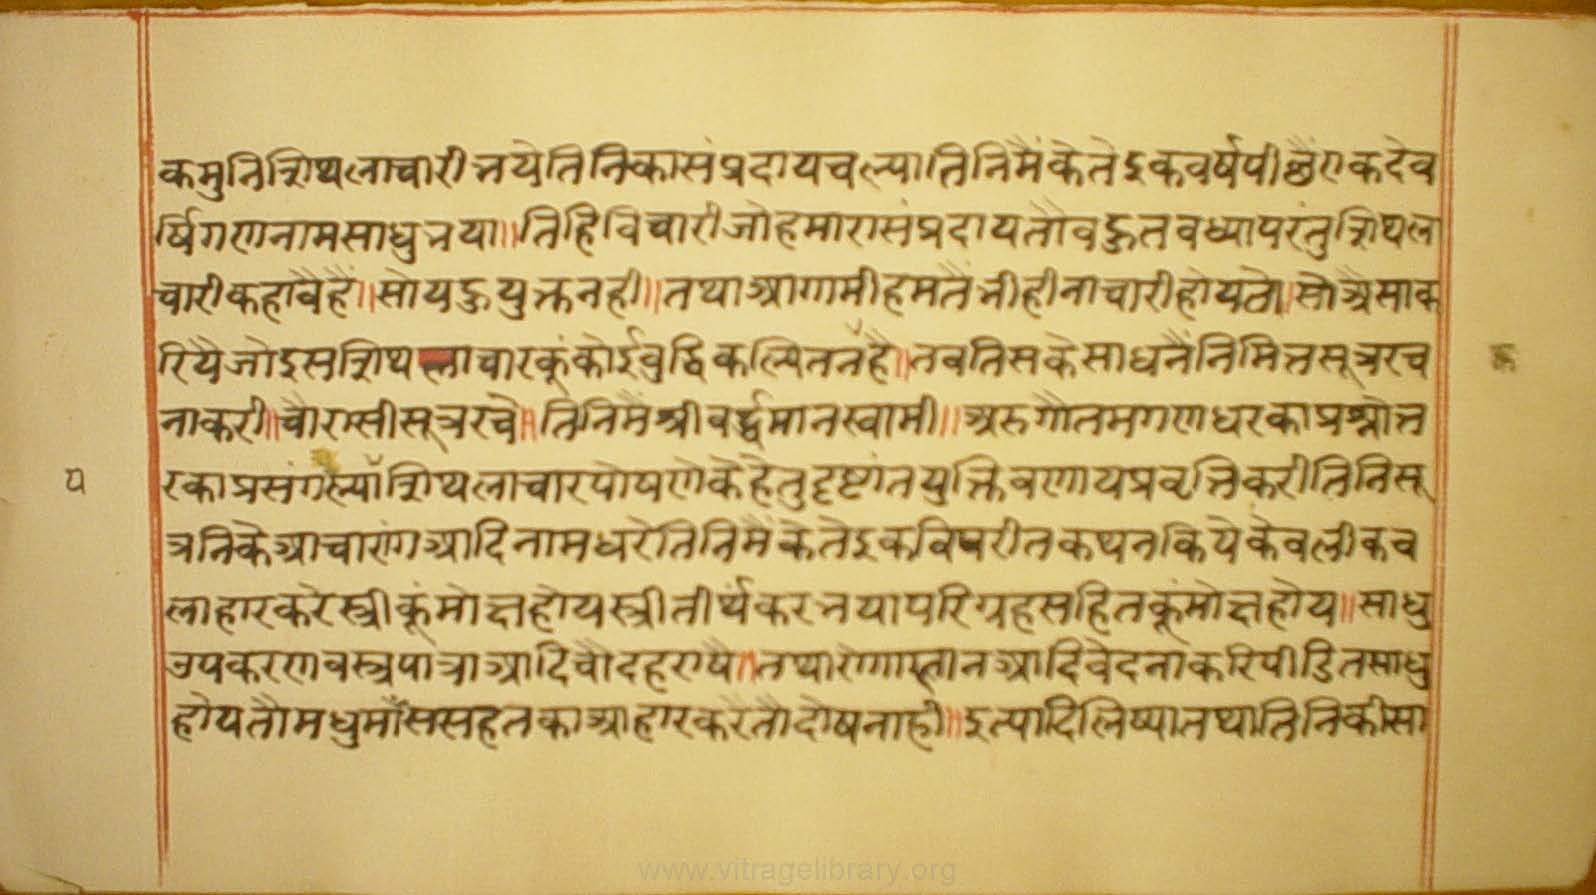 कमुनिशिथलाचारीभयेतिनिकासंप्रदायचल्यातिनिमैंकेतेइकवर्षपीछैंएकदेव
र्षिगणनामसाधुभया॥तिहिविचारीजोहमारासंप्रदायतौवहुतवध्यापरंतुशिथला
चारीकहावैहैं॥सोयहुयुक्तनही॥तथाआगामीहमतैंभीहीनाचारीहोयठो॥सोअैसाक
रियैजोइसशिथलाचारकूंकोईवुद्धिकल्पितनहै॥तवतिसकेसाधनैंनिमित्तसूत्ररच
नाकरी॥चौरासीसूत्ररचे॥तिनिमैंश्रीवर्द्धमानस्वामी॥अरुगौतमगणधरकाप्रश्नोत्त
रकाप्रसंगल्याँशिथलाचारपोषणेकेहेतुदृष्टांतयुक्तिवणायप्रवृत्तिकरीतिनिसू
त्रनिकेआचारांगआदिनामधरेतिनिमैंकेतेइकविपरीतकथनकियेकेवलीकव
लाहारकरेस्त्रीकूंमोक्षहोयस्त्रीतीर्थंकरभयापरिग्रहसहितकूंमोक्षहोय॥साधु
उपकरणवस्त्रपात्राआदिचौदहराषै॥तथारोगग्लानआदिवेदनाकरिपीडितसाधु
होयतौमधुमाँससहतकाआहारकरैतौदोषनाही॥इत्यादिलिष्यातथातिनिकीसा
य
www.vitragelibrary.org